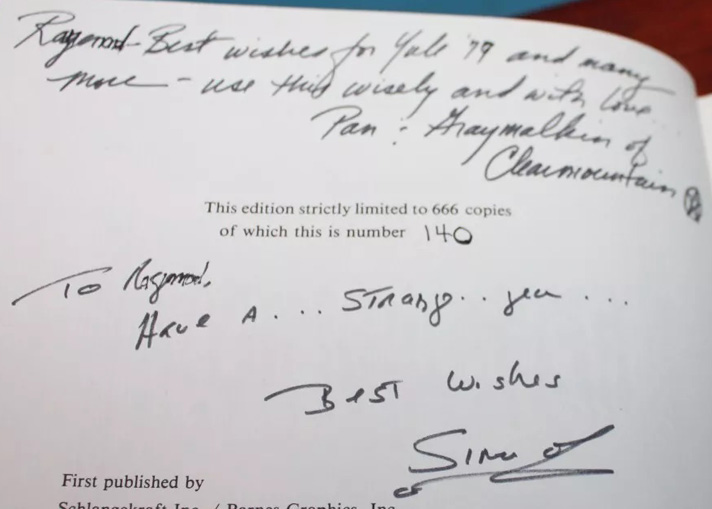 Raymond - Best wishes for Yule '79 and many
more - use this wisely and with love
Pan : Graymalkin of
Clearmountain
This edition strictly limited to 666 copies
of which this is number 140
To Raymond,
Have a . . . Strang . . year . . .
Best Wishes
Simon
First published by
Schlangekraft Inc. / Barnes Graphics, Inc.